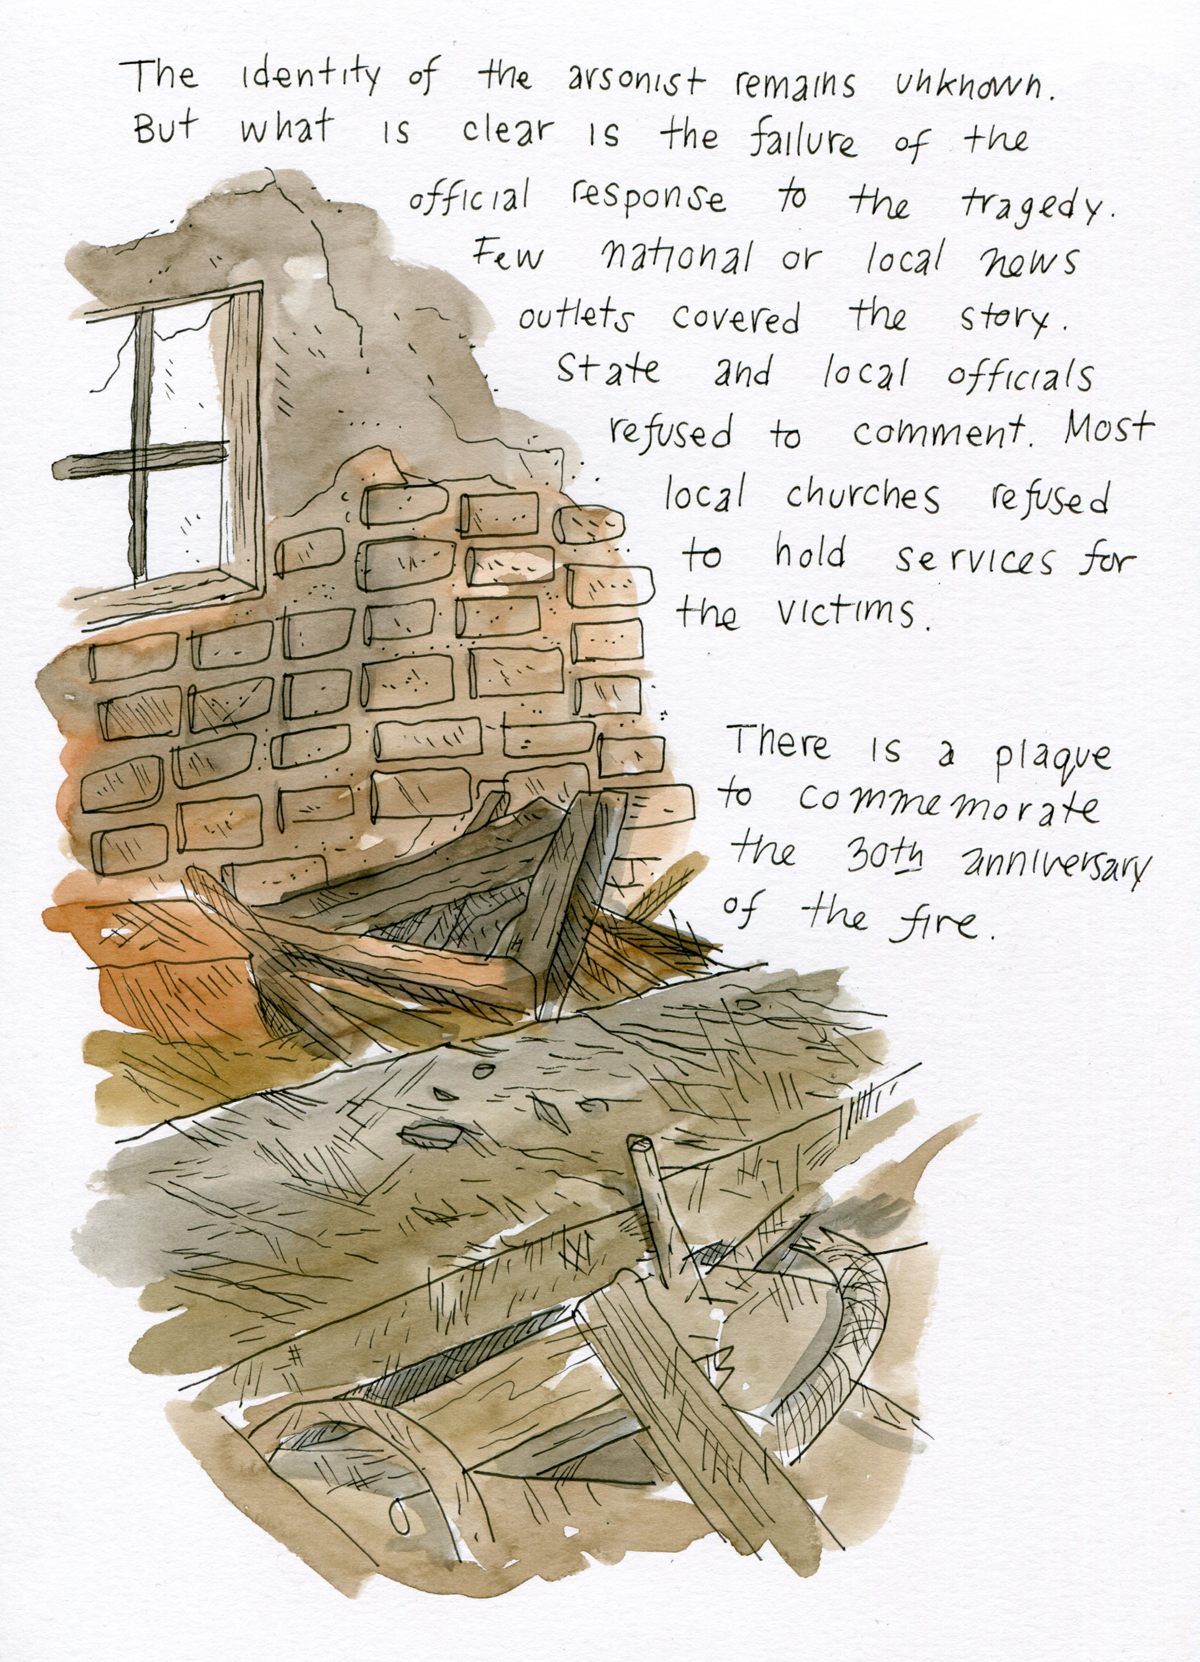 The identity of the arsonist remains unknown.
But what is clear is the failure of the
official response to the tragedy.
Few national or local news
outlets covered the story.
State and local officials
refused to comment. Most
local churches refused
to hold services for
the victims.
There is a plaque
to commemorate
the 30th anniversary
of the fire.